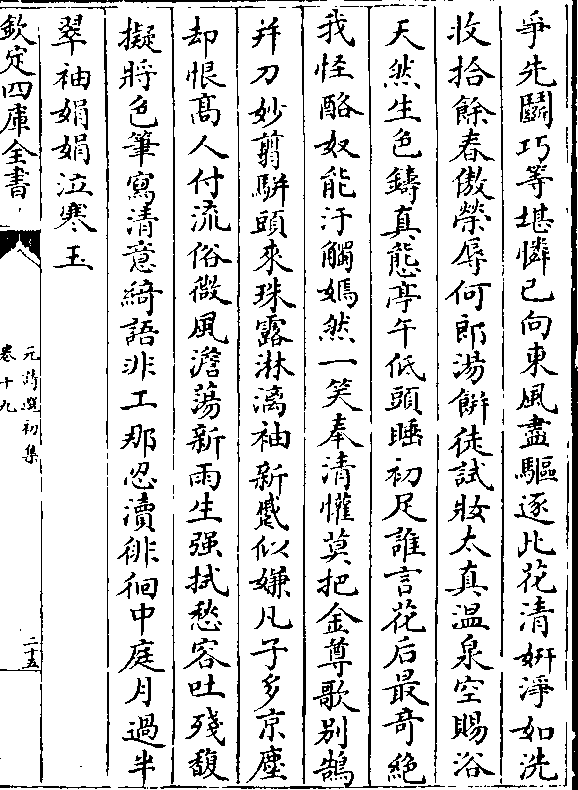 爭先鬭巧等堪憐已向東風盡驅逐此花清姸淨如洗
收拾餘春傲榮辱何郎湯餅徒試妝太真温泉空賜浴
天然生色鑄真態亭午低頭睡初足誰言花后最奇絶
我怪酪奴能汙觸嫣然一笑奉清懽莫把金尊歌别鵠
并刀妙翦駢頭來珠露淋漓袖新蹙似嫌凡子多京塵
却恨高人付流俗微風澹蕩新雨生强拭愁容吐殘馥
擬將色筆寫清意綺語非工那忍瀆徘徊中庭月過半
翠袖娟娟泣寒玉
欽定四庫全書
元詩選初集
卷十九
二十五